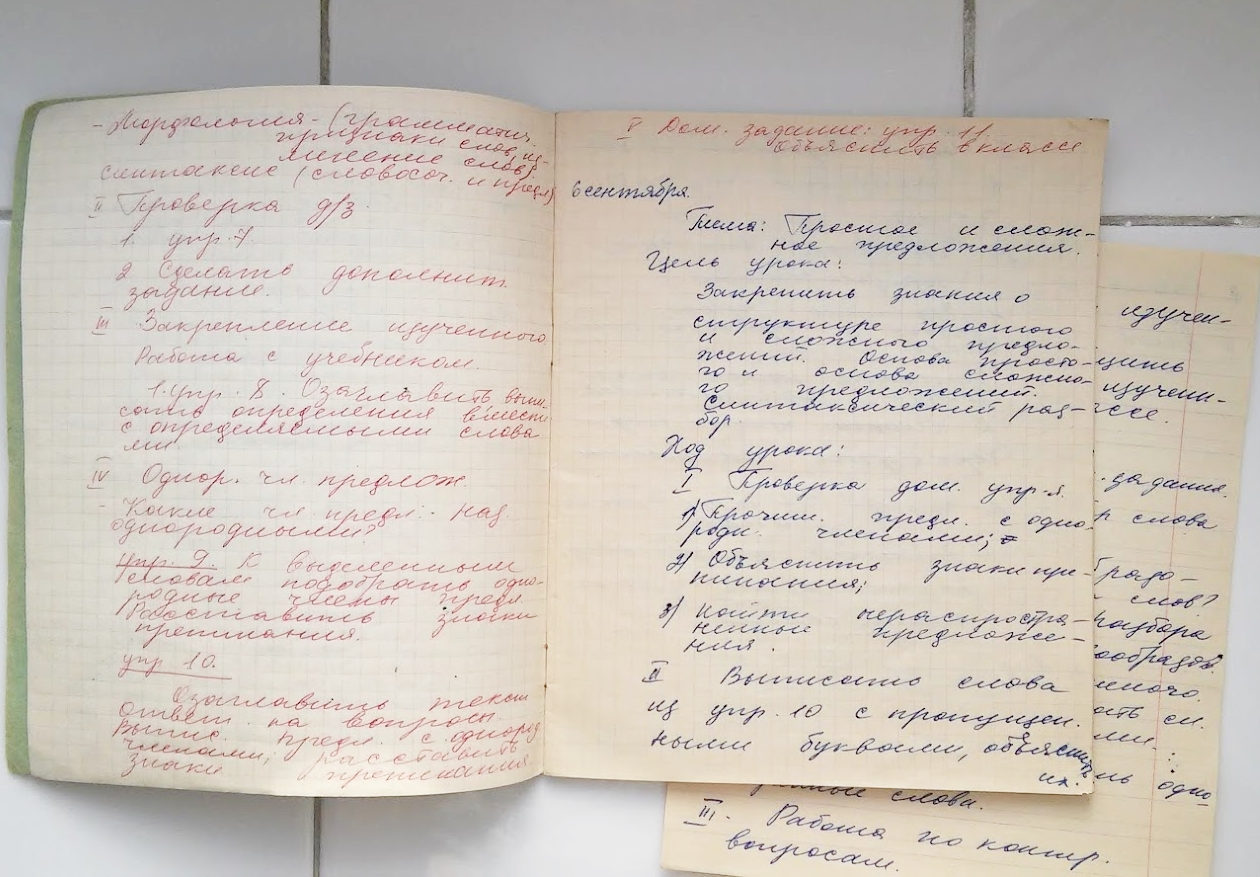 - Морфология - (грамматич.
признаки слов, из-
менение слов).
синтаксис (словосоч. и предл)
II Проверка д/з.
1. упр. 7.
2 Сделать дополнит.
задание.
III Закрепление изученного
Работа с учебником.
1. Упр. 8. Озаглавить, выпи-
сать определения вместе
с определяемыми слова
ми.
IV Однор. чл. предлож.
- Какие чл. предл. наз.
однородными?
Упр. 9. К выделенным
словам подобрать одно-
родные члены предл.
Расставить знаки
препинания.
упр 10.
Озаглавить текст
ответ. на вопросы.
Выпис. предл. с однород
членами, расставить
знаки препинания
V Дом. задание: упр. 11.
Объяснить в классе
6 сентября.
Тема: Простое и слож-
ное предложения.
Цель урока:
Закрепить знания о
структуре простого
и сложного предло-
жений. Основа просто-
го и основа сложно-
го предложений.
Синтаксический раз-
бор.
Ход урока:
I Проверка дом. упр-я.
1) Прочит. предл. с одно-
родн. членами;
2) Объяснить знаки пре-
пинания;
3) найти нераспростра-
ненные предложе-
ния.
II Выписать слова
из упр. 10 с пропущен.
ными буквами, объяснить
их.
изучен-
изучени-
задания.
слова
слов?
разбора
одно
слова.
III. Работа по контр.
вопросам.